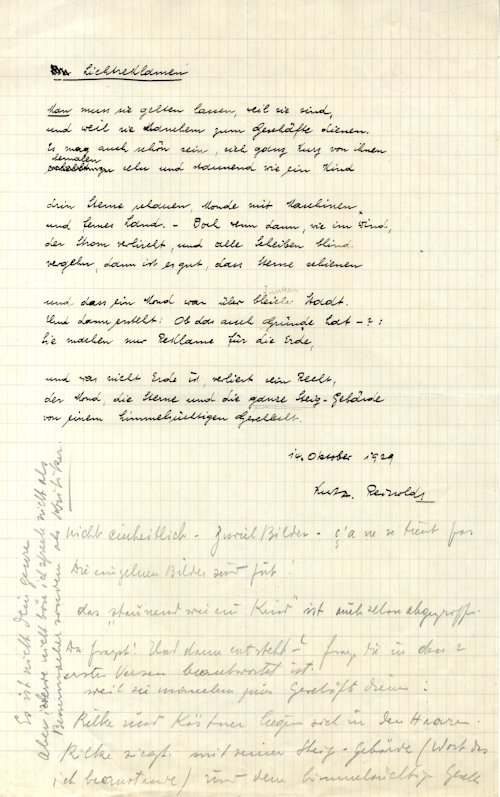 Lichtreklamen
Man muss sie gelten lassen, weil sie sind,
und weil sie Manchem zum Geschäfte dienen.
Es mag auch schön sein, sich ganz kurz von ihnen
und staunend wie ein Kind
drin Sterne schauen, Monde mit Maschinen
und fernes Land. - Doch wenn dann, wie im Wind,
der Strom verlischt, und alle Scheiben blind
vergehn, dann ist es gut, dass Sterne schienen
und dass ein Mond war über Stadt.
Und dann entsteht: Ob das auch Gründe hat - ? :
Sie machen nur Reklame für die Erde,
und was nicht Erde ist, verliert sein Recht,
der Mond, die Sterne und die ganze Steig-Gebärde
von einem himmelsüchtigen Geschlecht.
14. Oktober 1929
nicht einheitlich - Zuviel Bilder - ça ne se tient pas
Die einzelnen Bilder sind gut!
das "staunend wie ein Kind" ist auch schon abgegriffen
Du fragst: Und dann entsteht - ? frag die in den 2
ersten Versen beantwortet ist.
weil sie manchem zum Geschäft dienen!
Rilke und Kästner liegen sich in den Haaren.
Rilke siegt mit seiner Steig-Gebärde (Wort das
ich beanstande) und dem himmelsüchtigen Geschl
Es ist nicht dein genre
Aber werde nicht böse ich spreche nicht als
sondern als Kritiker.